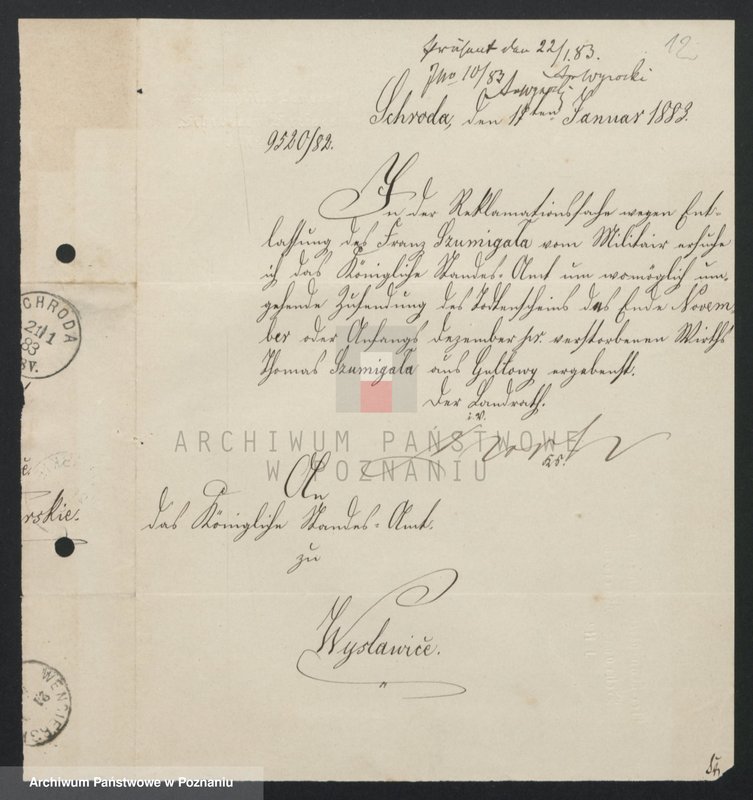 Präsent den 22/1.83.
12
JNo 10/83
Schroda, den 19ten Januar 1883.
9520/82.
In der Reklamationssache wegen Ent-
lassung des Franz Szumigala vom Militair ersuche
ich das Königliche Standes-Amt um womöglich um-
gehende Zusendung des Todtenscheins des Ende Novem-
ber oder Anfangs Dezember pr. verstorbenen Wirths
Thomas Szumigala aus Gultowy ergebenst.
Der Landrath.
i.V.
An
das Königliche Standes-Amt.
zu
Wyslawice.
SCHRODA
21/1
83
WENGIERSK
rskie.
ARCHIWUM PAŃSTWOWE
W POZNANIU
Archiwum Państwowe w Poznaniu